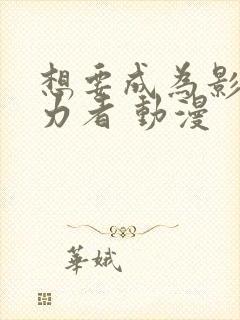 想要成為影
力者 動漫
華娥